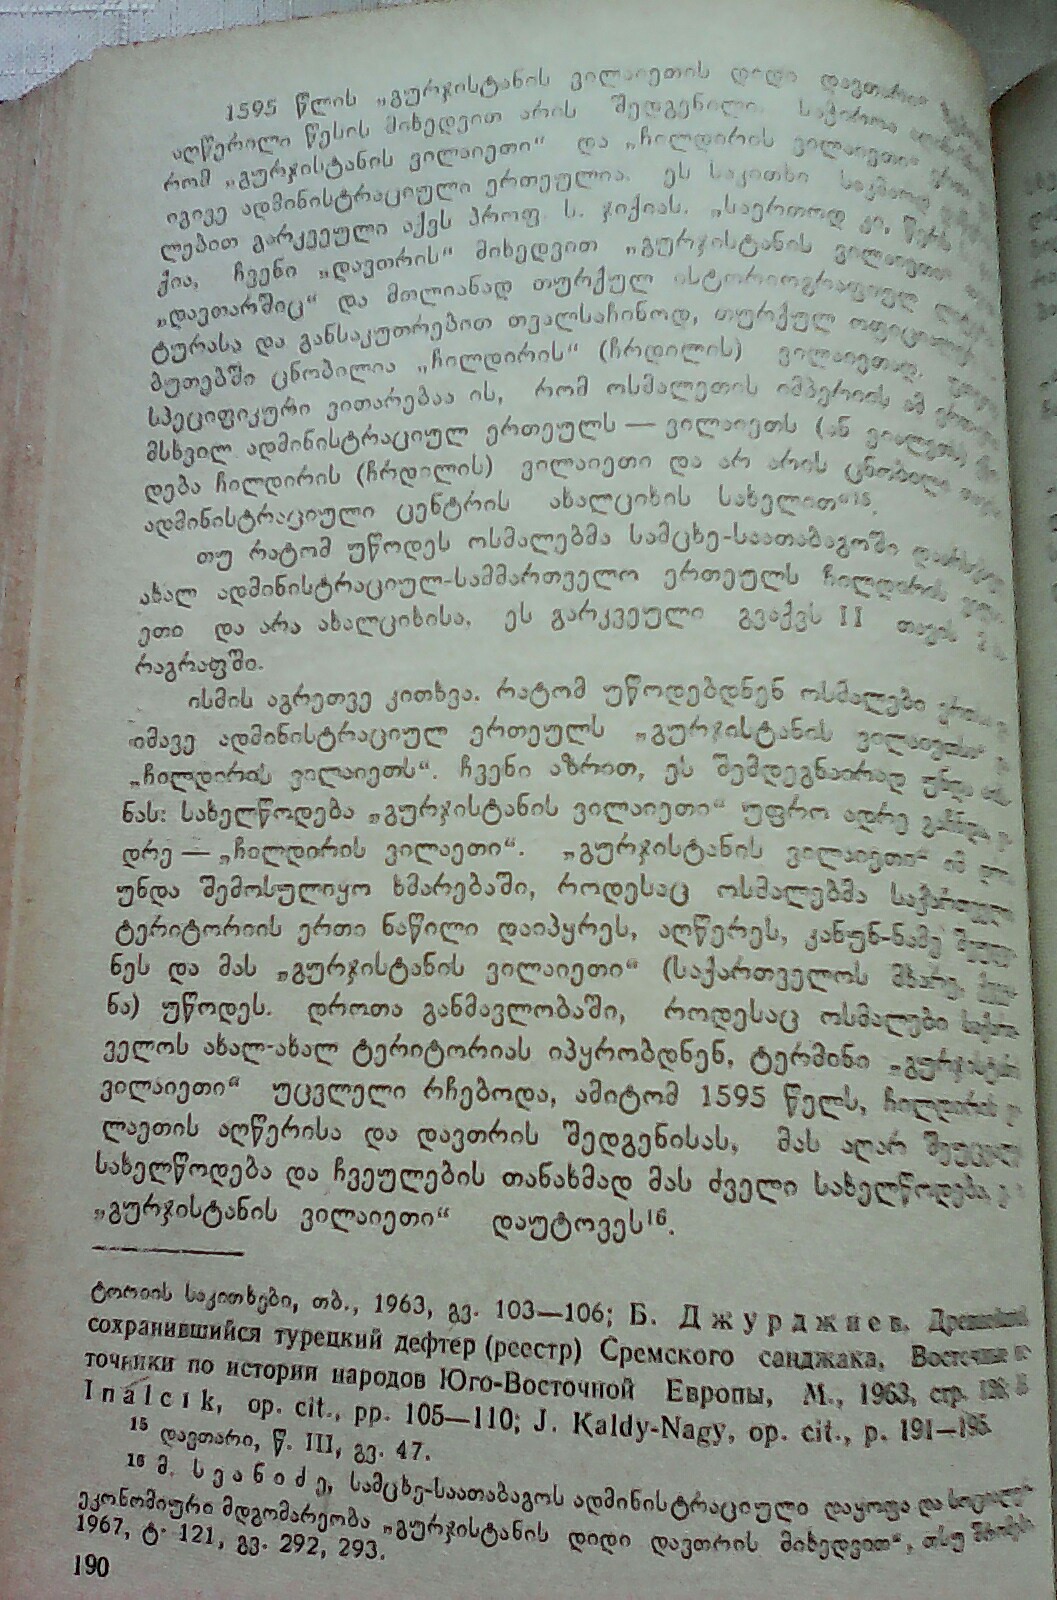 1595 წლის „გურჯისტანის ვილაიეთის დიდი დავთარი"
აღწერილი წესის მიხედვით არის შედგენილი. საჭიროა
რომ „გურჯისტანის ვილაიეთი" და „ჩილდირის ვილაიეთი"
იგივე ადმინისტრაციული ერთეულია. ეს საკითხი საკმაოდ
ლებით გარკვეული აქვს პროფ. ს. ჯიქიას. „საერთოდ კი, წერს
ქია, ჩვენი „დავთრის" მიხედვით „გურჯისტანის ვილაიეთი
„დავთარშიც" და მთლიანად თურქულ ისტორიოგრაფიულ
ტურასა და განსაკუთრებით თვალსაჩინოდ, თურქულ ოფიციალურ
ბუთებში ცნობილია „ჩილდირის" (ჩრდილის) ვილაიეთად.
სპეციფიკური ვითარებაა ის, რომ ოსმალეთის იმპერიის ამ ერთ-ერთ
მსხვილ ადმინისტრაციულ ერთეულს — ვილაიეთს (ან
დება ჩილდირის (ჩრდილის) ვილაიეთი და არ არის ცნობილი
ადმინისტრაციული ცენტრის ახალციხის სახელით"15.
თუ რატომ უწოდეს ოსმალებმა სამცხე-საათაბაგოში
ახალ ადმინისტრაციულ-სამმართველო ერთეულს ჩილდირის
ეთი და არა ახალციხისა, ეს გარკვეული გვაქვს II თავის
რაგრაფში.
ისმის აგრეთვე კითხვა. რატომ უწოდებდნენ ოსმალები
იმავე ადმინისტრაციულ ერთეულს „გურჯისტანის ვილაიეთს"
„ჩილდირის ვილაიეთს". ჩვენი აზრით, ეს შემდეგნაირად უნდა
ნას: სახელწოდება „გურჯისტანის ვილაიეთი" უფრო ადრე გაჩნდა
დრე — „ჩილდირის ვილაეთი". „გურჯისტანის ვილაიეთი" იმ
უნდა შემოსულიყო ხმარებაში, როდესაც ოსმალებმა საქართველოს
ტერიტორიის ერთი ნაწილი დაიპყრეს, აღწერეს, კანუნ-ნამე
ნეს და მას „გურჯისტანის ვილაიეთი" (საქართველოს მხარე,
ნა) უწოდეს. დროთა განმავლობაში, როდესაც ოსმალები
ველოს ახალ-ახალ ტერიტორიას იპყრობდნენ, ტერმინი „გურჯისტანის
ვილაიეთი" უცვლელი რჩებოდა, ამიტომ 1595 წელს, ჩილდირის
ლაეთის აღწერისა და დავთრის შედგენისას, მას აღარ
სახელწოდება და ჩვეულების თანახმად მას ძველი სახელწოდება,
„გურჯისტანის ვილაიეთი" დაუტოვეს16.
ტორიის საკითხები, თბ., 1963, გვ. 103—106; Б. Джурджиев.
сохранившийся турецкий дефтер (реестр) Сремского санджака,
точники по истории народов Юго-Восточной Европы, М., 1963, стр.
Inalcık, op. cit., pp. 105—110; J. Kaldy-Nagy, op. cit., p. 191—195.
15 დავთარი, წ. III, გვ. 47.
16 მ. სვანიძე, სამცხე-საათაბაგოს ადმინისტრაციული დაყოფა და
ეკონომიური მდგომარეობა „გურჯისტანის დიდი დავთრის მიხედვით", თსუ შრომები,
1967, ტ. 121, გვ. 292, 293.
190